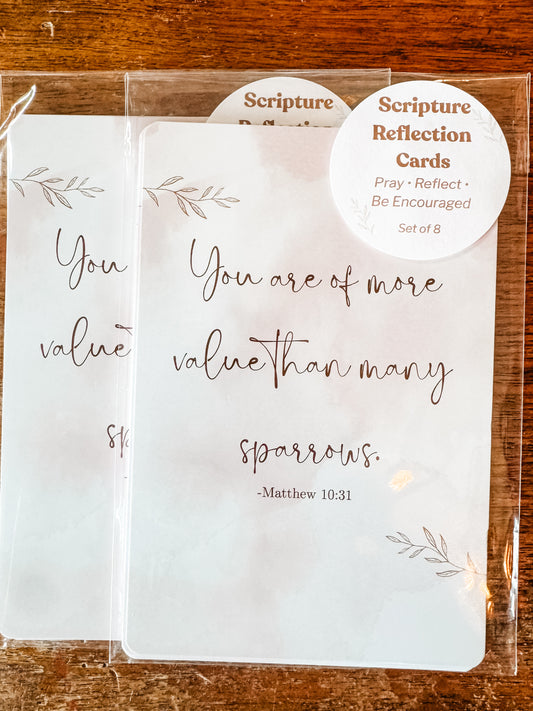 Scripture
Scripture
Reflection
Cards
Pray • Reflect •
Be Encouraged
Set of 8
You
value
You are of more
value than many
sparrows.
-Matthew 10:31